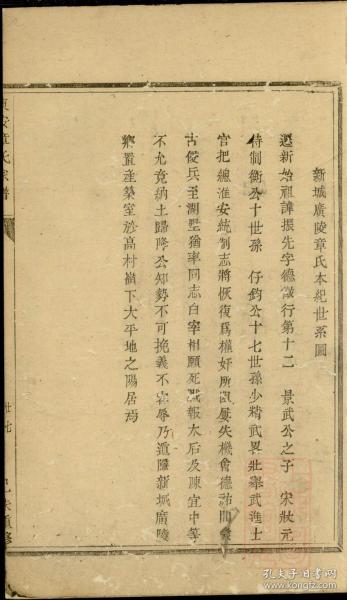 新城廣陵章氏本紀世系圖
遷新始祖諱振先字德懋行第十二 景武公之子 宋狀元
待制衡公十世孫 仔鈞公十七世孫少精武畧壯舉武進士
官把總淮安統制志將恢復爲權奸所阻屢失機會德祐間蒙
古侵兵至澗墅猶率同志白宰相願死戰報太后及陳宜中等
不允竟納土歸降公知勢不可挽義不辱乃遁隱新城廣陵
鄉置產築室於高村嶺下大平地之陽居焉
章氏宗譜
廿七
孔夫子旧书网